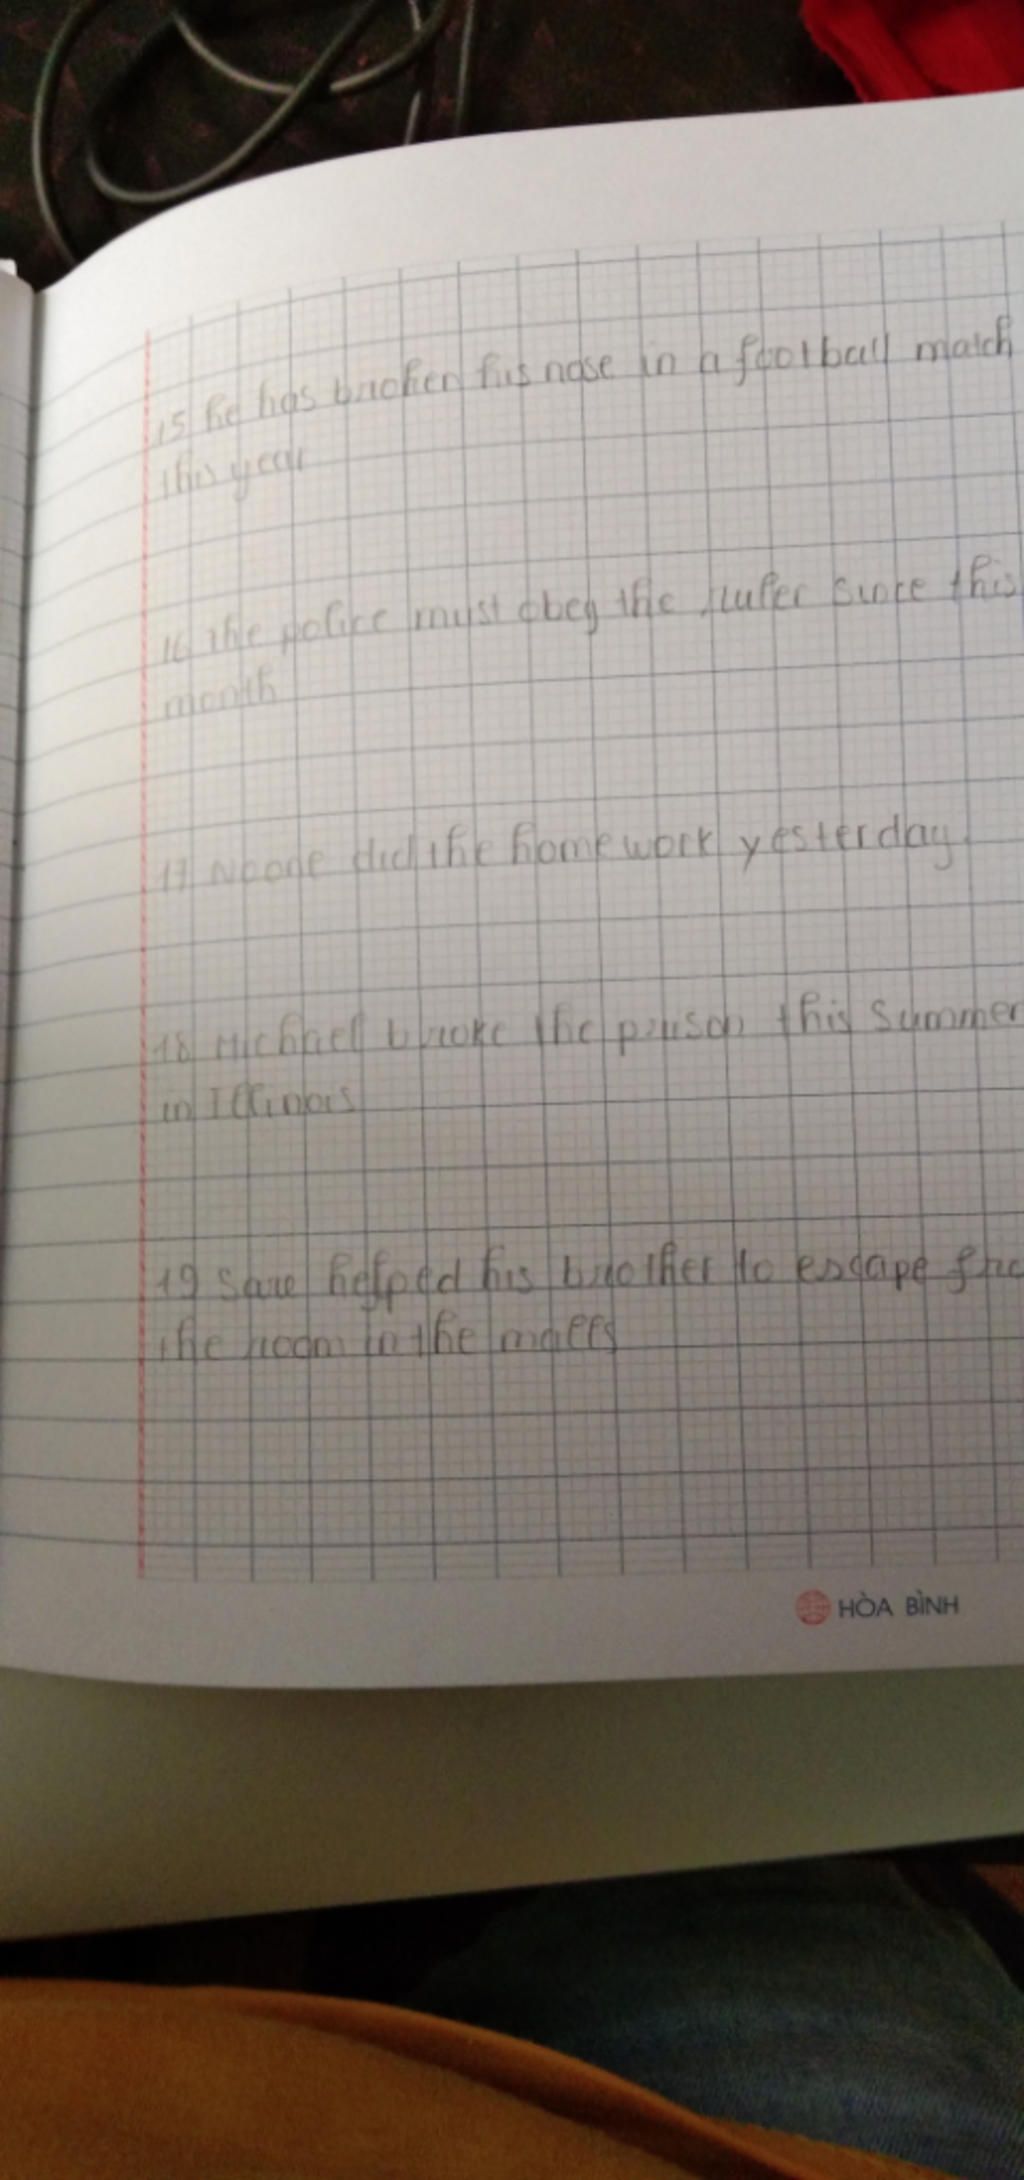 15 he has broken his nose in a football match
this year
16 the police must obey the rules since this
month
17 Noone did the homework yesterday.
18 Michael broke the prison this summer
in Illinois
19 helped his brother to escape
the room in the
HÒA BÌNH